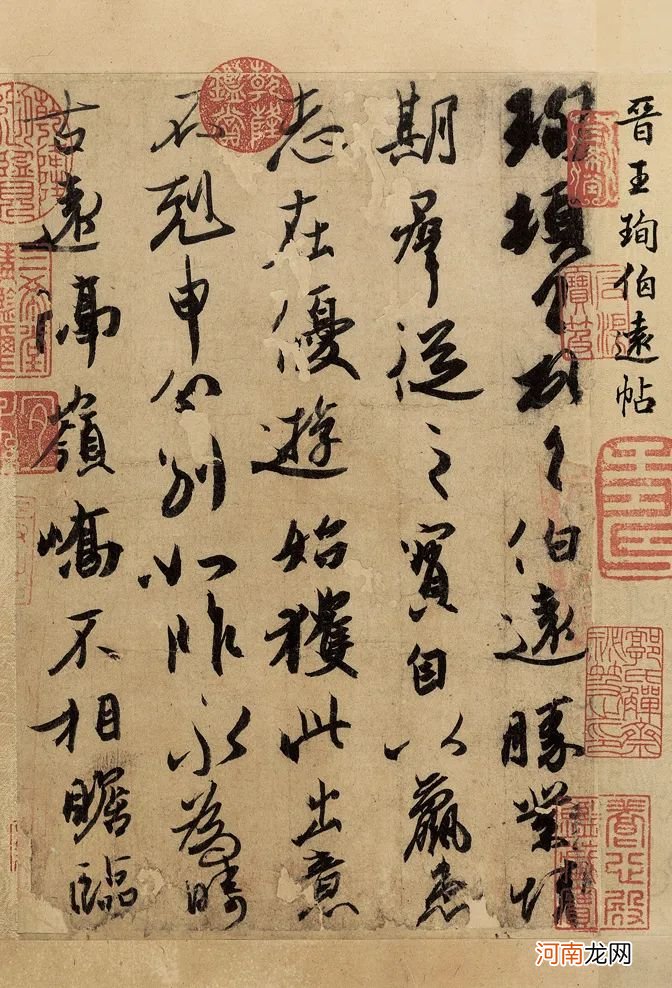 晉王珣伯遠帖
珣頓首頓首伯遠勝業情
期羣從之寶自以羸患
志在優遊始獲此出意
不剋申分別如昨永為疇
古遠隔嶺嶠不相瞻臨
乾隆鑑賞
河南龙网